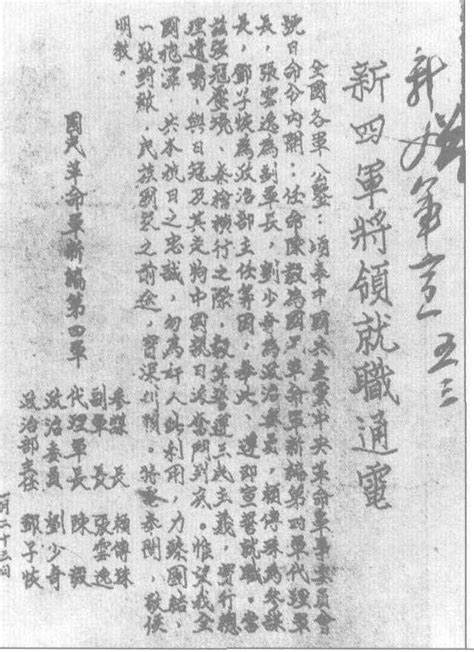 五三
新四軍將領就職通電
全國各軍公鑒：頃奉中國共產黨中央革命軍事委員會
號日命令內開：任命陳毅為國民革命軍新編第四軍代理軍
長，張雲逸為副軍長，劉少奇為政治委員，賴傳珠為參謀
長，鄧子恢為政治部主任等因，奉此，遵即宣誓就職。當
茲強寇壓境、秦檜橫行之際，毅等誓遵三民主義，實行總
理遺囑，與日寇及其走狗中國親日派奮鬥到底。惟望我全
國袍澤，共本抗日之忠誠，勿為奸人所利用，力臻團結，
一致對敵，民族之前途，深利賴。特電奉聞，敬候
明教。
國民革命軍新編第四軍
參謀長 賴傳珠
副軍長 張雲逸
代理軍長 陳毅
政治委員 劉少奇
政治部主任 鄧子恢
一月二十三日